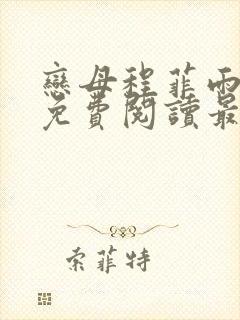 戀母程菲雨
免費閱讀最
索菲特